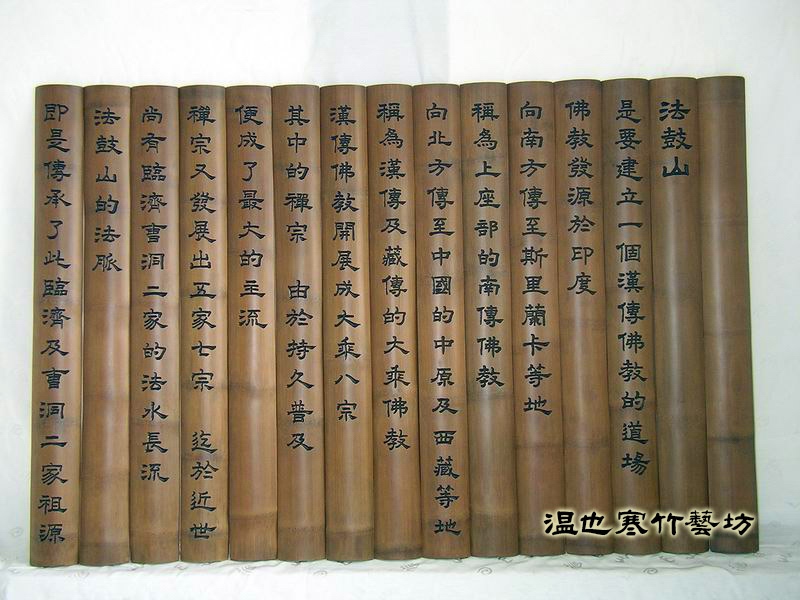 法鼓山
是要建立一個漢傳佛教的道場
佛教發源於印度
向南方傳至斯里蘭卡等地
稱為上座部的南傳佛教
向北方傳至中國的中原及西藏等地
稱為漢傳及藏傳的大乘佛教
漢傳佛教開展成大乘八宗
其中的禪宗　由於持久普及
便成了最大的主流
禪宗又發展出五家七宗　迄於近世
尚有臨濟曹洞二家的法水長流
法鼓山的法脈
即是傳承了此臨濟及曹洞二家祖源
温也寒竹藝坊